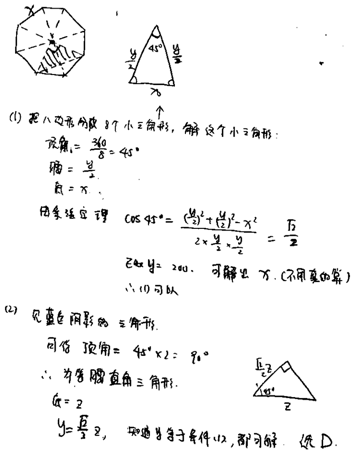 x
y/2 45° y/2
x
(1) 把八边形分成8个小三角形, 解这个小三角形:
顶角 = 360/8 = 45°
腰 = y/2
底 = x.
用余弦定理 cos 45° = ((y/2)²+(y/2)²-x²)/(2×y/2×y/2) = √2/2
y = 200. 可解出 x. (不用真的算)
∴ (1) 可以
(2) 见蓝色阴影的三角形.
可得 顶角 = 45°×2 = 90°
∴ 为等腰直角三角形.
底 = z
√2/2 z 45°
z
y = √2 z, 知道 等于条件(1), 即可解. 选 D.